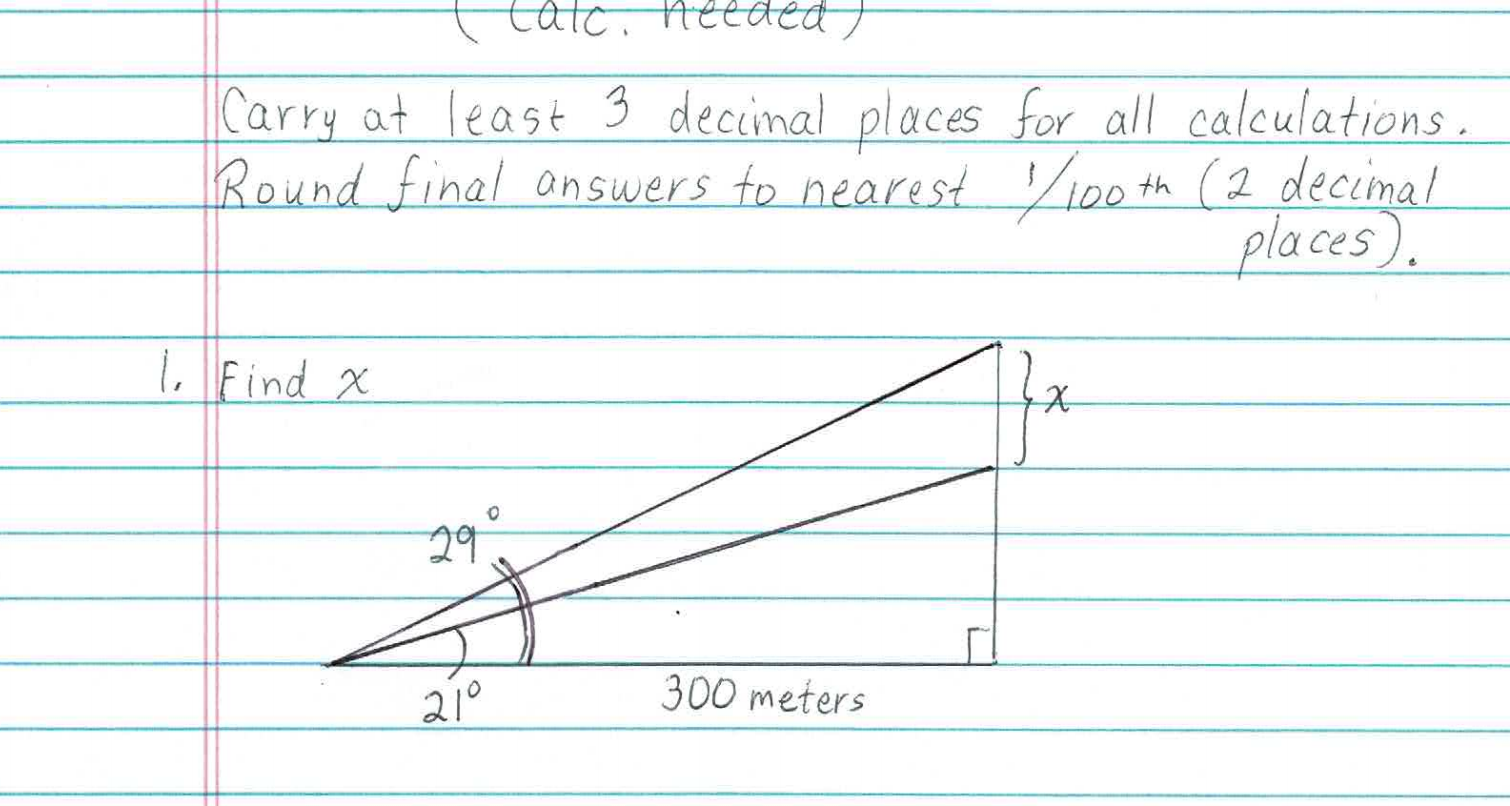 ( Calc. needed)
Carry at least 3 decimal places for all calculations.
Round final answers to nearest 1/100th (2 decimal
places).
1. Find x
x
29°
21°
300 meters